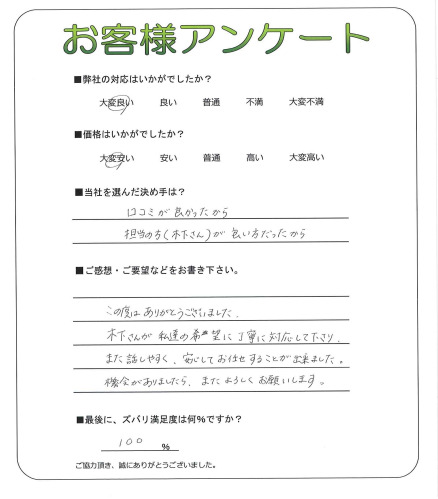 お客様アンケート
■弊社の対応はいかがでしたか？
大変良い 良い 普通 不満 大変不満
■価格はいかがでしたか？
大変安い 安い 普通 高い 大変高い
■当社を選んだ決め手は？
口コミが良かったから
担当の方(木下さん)が良い方だったから
■ご感想・ご要望などをお書き下さい。
この度はありがとうございました。
木下さんが私達の希望に丁寧に対応して下さり、
また話しやすく、安心してお任せすることが出来ました。
機会がありましたら、またよろしくお願いします。
■最後に、ズバリ満足度は何%ですか？
100 %
ご協力頂き、誠にありがとうございました。